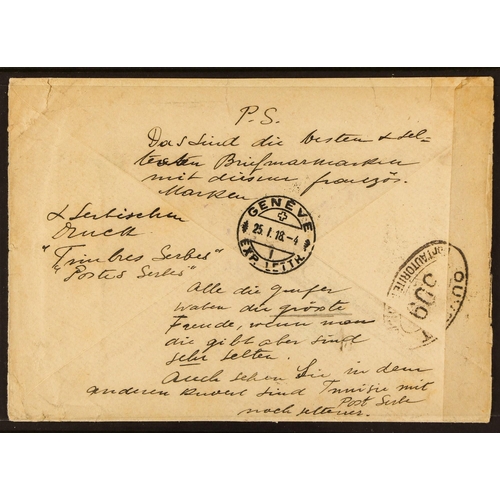 P.S.
Das sind die besten & sel-
testen Briefmarmarken
mit diesem französ.
Marken
& Serbischen
Druck
"Timbres Serbes"
"Postes Serbes"
GENÈVE
25.I.18.-4
1
EXP. LETTR.
Alle die
haben die grösste
Freude, wenn man
die gibt aber sind
sehr selten.
Auch sehen Sie in dem
anderen Kuvert sind Tunisie mit
Post Serbe
noch seltener.
OUVERT
AUTORITÉ
609